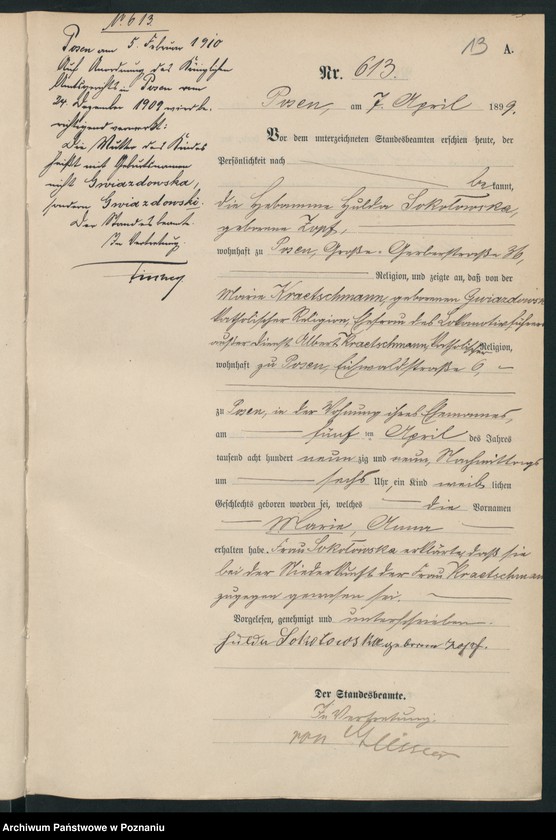 No 613.
Posen am 5. Februar 1910
Auf Anordnung des Königlichen
Amtsgerichts in Posen vom
24. Dezember 1909 wird be-
richtigend vermerkt:
Die Mutter des Kindes
heißt mit Geburtsnamen
nicht Gwiazdowska,
sondern Gwiazdowski.
Der Standesbeamte.
In Vertretung.
13 A.
Nr. 613.
Posen, am 7. April 1899.
Vor dem unterzeichneten Standesbeamten erschien heute, der
Persönlichkeit nach
bekannt,
die Hebamme Hulda Sokolowska,
geborene Zopf,
wohnhaft zu Posen, Große-Gerberstraße 36,
Religion, und zeigte an, daß von der
Marie Kraetschmann, geborenen Gwiazdowska
katholischer Religion, Ehefrau des Lokomotivführers
außer Dienst Albert Kraetschmann, katholischer Religion,
wohnhaft zu Posen, Eichwaldstraße 6,
zu Posen, in der Wohnung ihres Ehemannes,
am fünften April des Jahres
tausend acht hundert neunzig und neun, Nachmittags
um sechs Uhr, ein Kind weiblichen
Geschlechts geboren worden sei, welches die Vornamen
Marie, Anna
erhalten habe. Frau Sokolowska erklärte, daß sie
bei der Niederkunft der Frau Kraetschmann
zugegen gewesen sei.
Vorgelesen, genehmigt und unterschrieben.
Hulda Sokolowska geborene Zopf.
Der Standesbeamte.
In Vertretung.
von
Archiwum Państwowe w Poznaniu